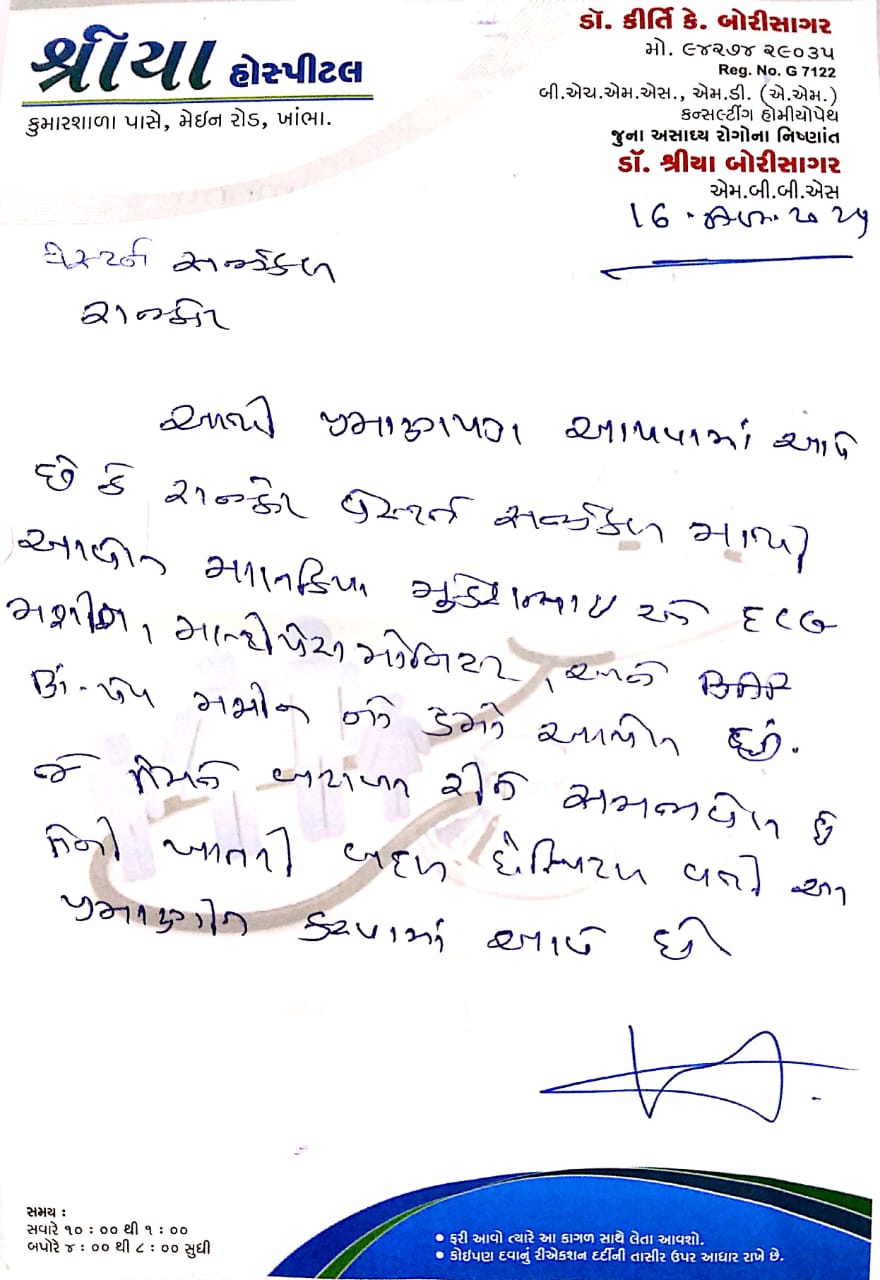 શ્રીયા હોસ્પીટલ
કુમારશાળા પાસે, મેઈન રોડ, ખાંભા.
ડૉ. કીર્તિ કે. બોરીસાગર
મો. ૯૪૨૭૪ ૨૯૦૩૫
Reg. No. G 7122
બી.એચ.એમ.એસ., એમ.ડી. (એ.એમ.)
કન્સલ્ટીંગ હોમીયોપેથ
જુના અસાધ્ય રોગોના નિષ્ણાંત
ડૉ. શ્રીયા બોરીસાગર
એમ.બી.બી.એસ
સર્જીકલ
રાજકોટ
આથી પ્રમાણપત્ર આપવામાં આવે
છે કે રાજકોટ સર્જીકલ માથી
આવીને મુકેશભાઇ
મશીન, મોનિટર, અને
મશીન નો ડેમો આપેલ છે.
જે તેમને બરાબર રીતે સમજાવેલ છે
તેની ખાતરી બદલ હોસ્પિટલ વતી આ
પ્રમાણીત કરવામાં આવે છે
સમય :
સવારે ૧૦ : ૦૦ થી ૧ : ૦૦
બપોરે ૪ : ૦૦ થી ૮ : ૦૦ સુધી
• ફરી આવો ત્યારે આ કાગળ સાથે લેતા આવશો.
• કોઈપણ દવાનું રીએકશન દર્દીની તાસીર ઉપર આધાર રાખે છે.